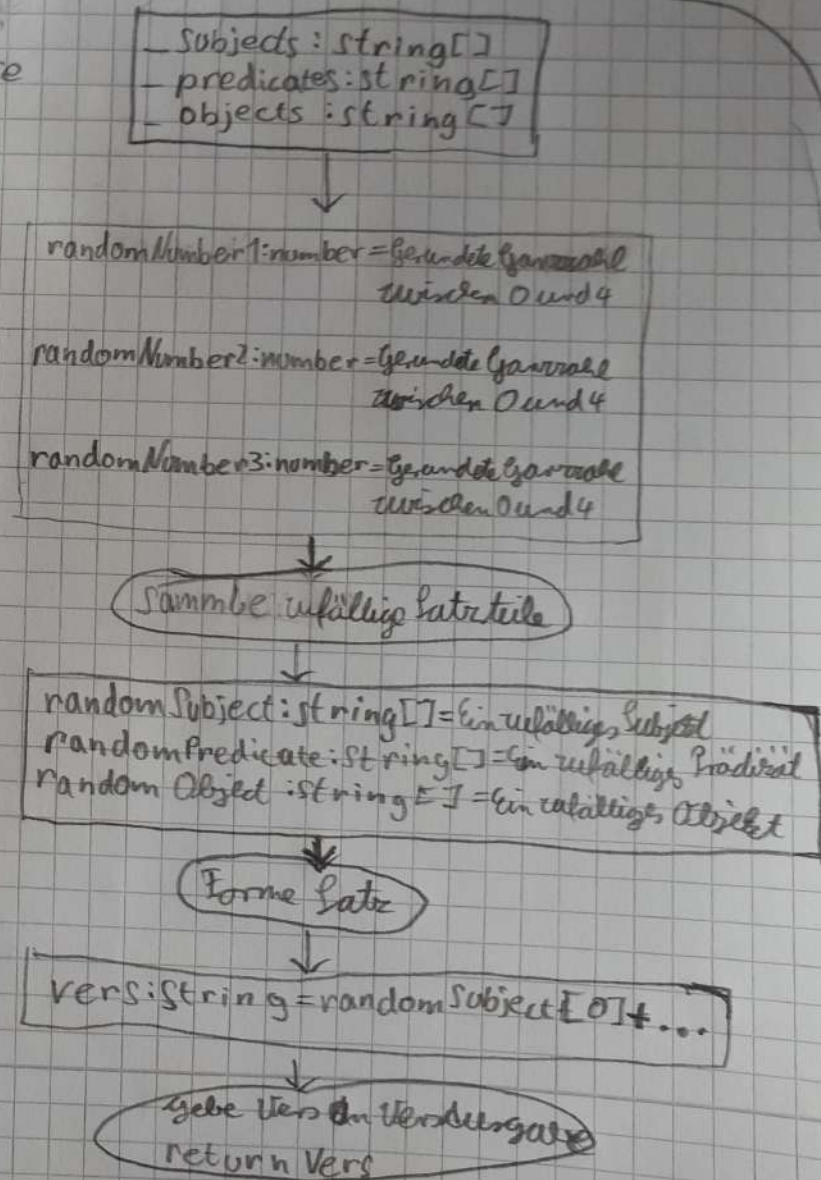 e
- subjects: string[]
- predicates: string[]
- objects: string[]
randomNumber1: number = Gerundete Ganzzahl
zwischen 0 und 4
randomNumber2: number = Gerundete Ganzzahl
zwischen 0 und 4
randomNumber3: number = Gerundete Ganzzahl
zwischen 0 und 4
Sammle zufällige Satzteile
randomSubject: string[] = Ein zufälliges Subjekt
randomPredicate: string[] = Ein zufälliges Prädikat
randomObject: string[] = Ein zufälliges Objekt
Forme Satz
vers: string = randomSubject[0] + ...
gebe Vers an Versausgabe
return Vers